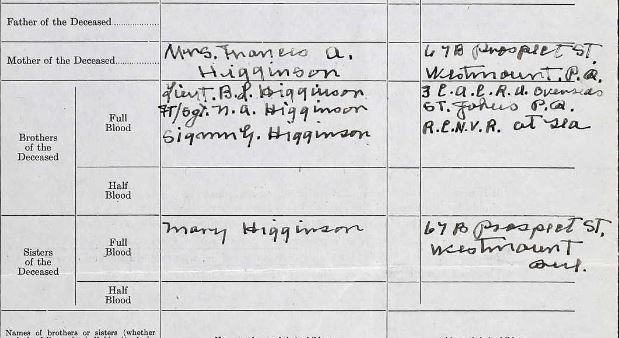 Father of the Deceased
Mother of the Deceased Mrs. Francis A. 67B Prospect St.
Higginson Westmount. P.Q.
Brothers of the Deceased
Full Blood
Lieut. B.L. Higginson 3 L.A.A.R.A. Overseas
Ft/Sgt. N.A. Higginson St. Johns P.Q.
Sigmn G. Higginson R.C.N.V.R. at sea
Half Blood
Sisters of the Deceased
Full Blood
Mary Higginson 67B Prospect St,
Westmount
Que.
Half Blood
Names of brothers or sisters (whether